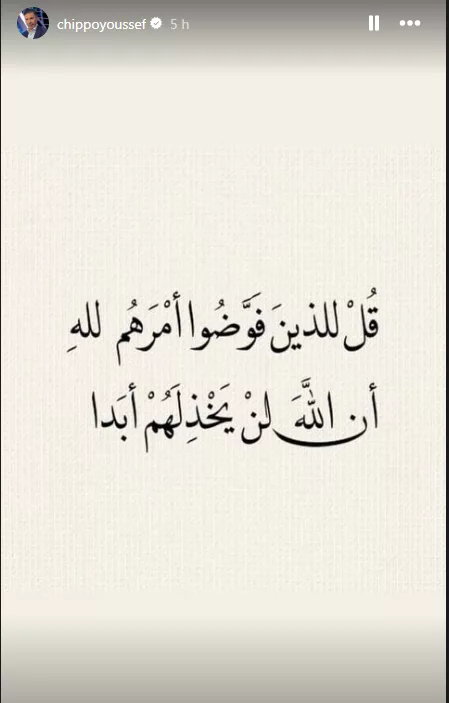 chippoyoussef 5 h
قُلْ للذينَ فَوَّضُوا أمْرَهُم للهِ
أن اللَّهَ لنْ يَخْذِلَهُمْ أبَدا